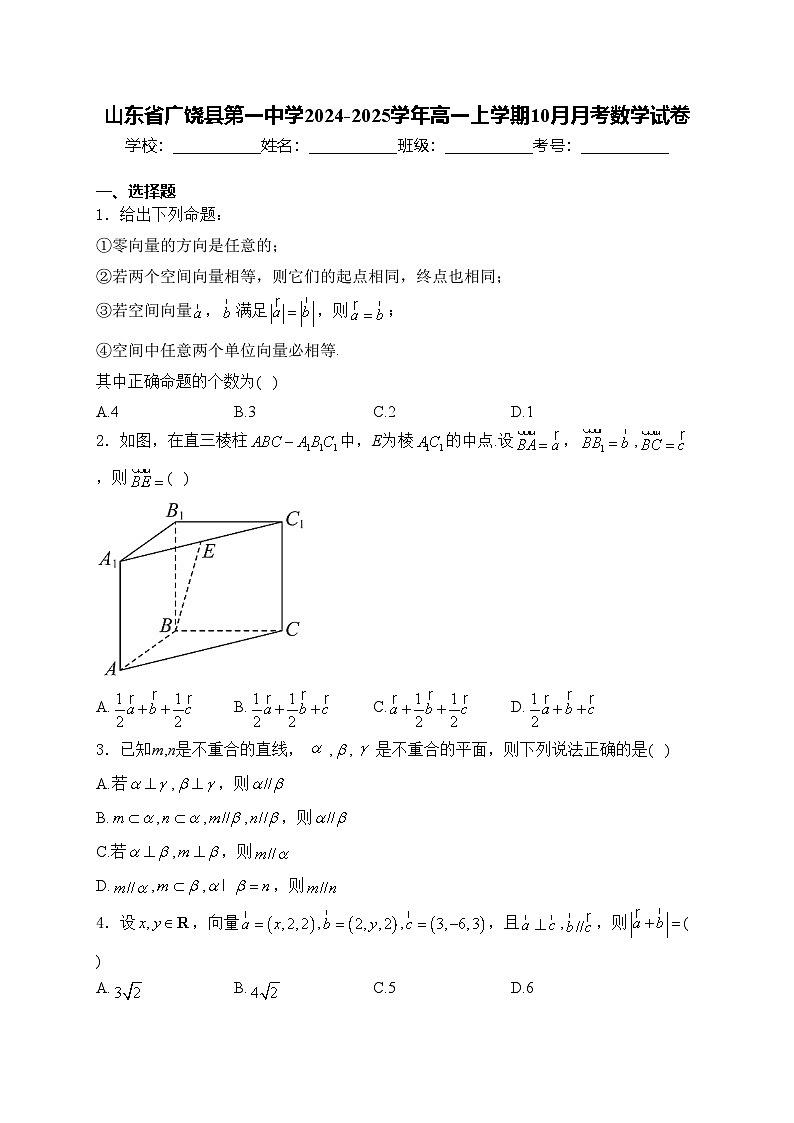 山东省广饶县第一中学2024-2025学年高一上学期10月月考数学试卷
学校：___________姓名：___________班级：___________考号：___________
一、选择题
1．给出下列命题：
①零向量的方向是任意的；
②若两个空间向量相等，则它们的起点相同，终点也相同；
③若空间向量a，b满足|a|=|b|，则a=b；
④空间中任意两个单位向量必相等.
其中正确命题的个数为( )
A.4 B.3 C.2 D.1
2．如图，在直三棱柱ABC-A₁B₁C₁中，E为棱A₁C₁的中点.设BA=a，BB₁=b,BC=c
,则BE=( )
B₁
C₁
A₁
E
B
C
A
A. 1/2 a+b+1/2 c B. 1/2 a+1/2 b+c C. a+1/2 b+1/2 c D. 1/2 a+b+c
3．已知m,n是不重合的直线， α ,β, γ 是不重合的平面，则下列说法正确的是( )
A.若α⊥γ,β⊥γ，则α//β
B. m⊂α,n⊂α,m//β,n//β，则α//β
C.若α⊥β,m⊥β，则m//α
D. m//α,m⊂β,α l β=n，则m//n
4．设x,y∈R,向量a=(x,2,2),b=(2,y,2),c=(3,-6,3)，且a⊥c,b//c，则|a+b|=(
)
A. 3√2 B. 4√2 C.5 D.6